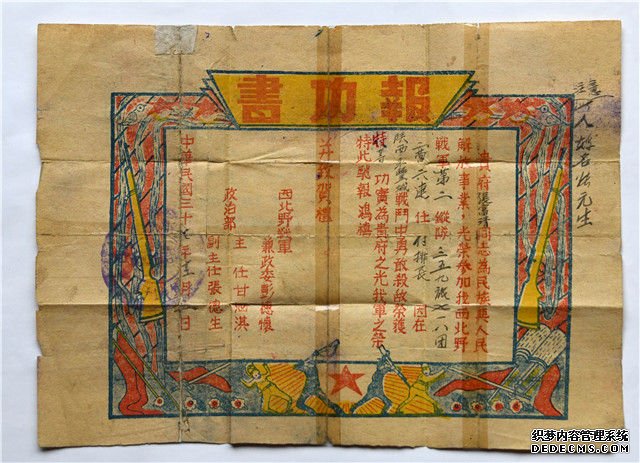 報功書
貴府張富清同志為民族與人民
解放事業，光榮參加我西北野
戰軍第二縱隊三五九旅七一八团
六連 任 付排長 因在
陝西永豐城戰鬥中勇敢殺敵荣獲
特等 功實為貴府之光我軍之榮
特此馳報鴻禧
并致賀禮
西北野戰軍
兼政委彭德懷
政治部
主任甘泗淇
副主任張德生
中華民國三十七年十二月 日
织梦内容管理系统
DEDECMS.COM